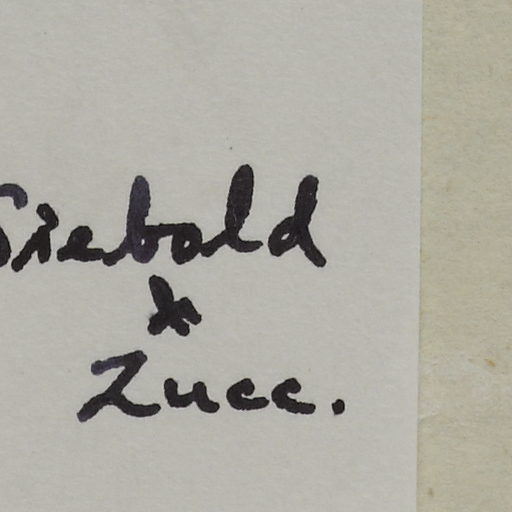 Siebold
&
Zucc.